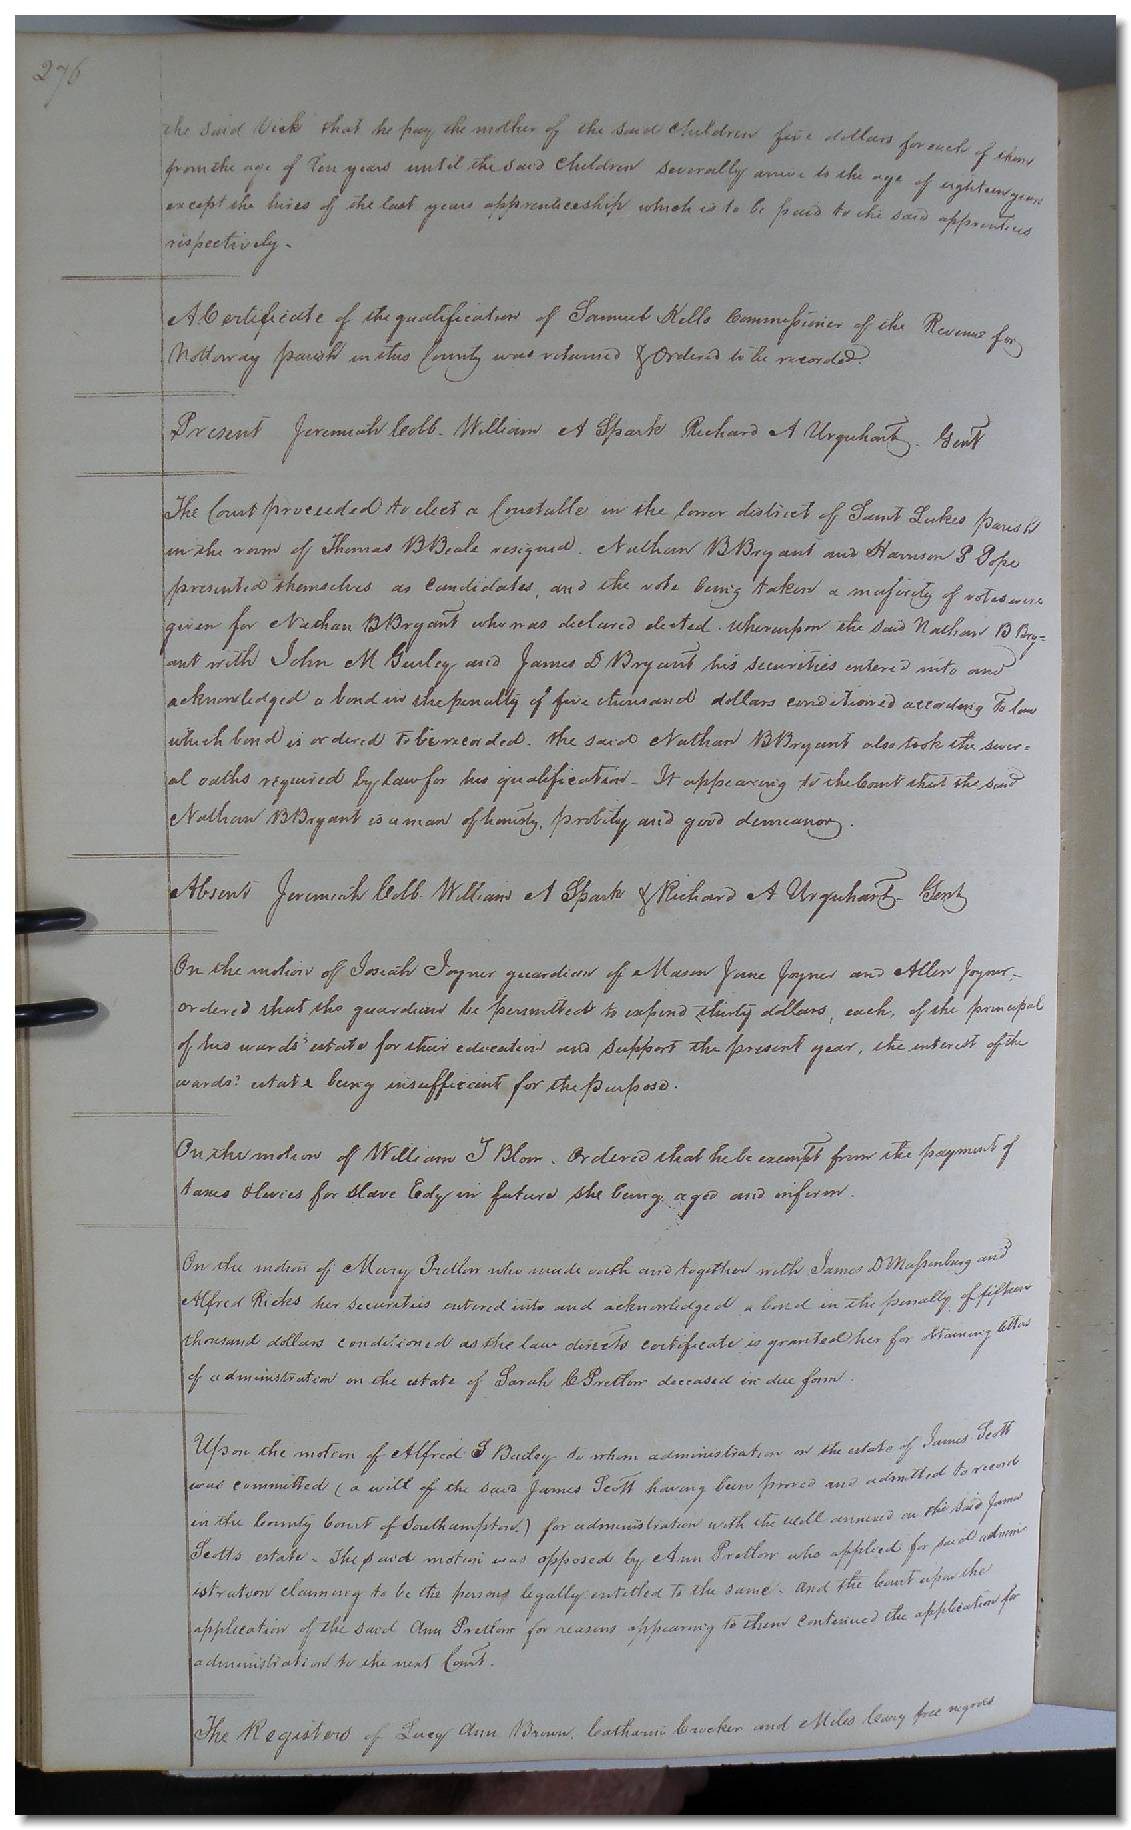 276
the said Vick that he pay the mother of the said Children five dollars for each of them
from the age of Ten years until the said Children severally arrive to the age of eighteen years
except the hires of the last years apprenticeship which is to be paid to the said apprentices
respectively.
A Certificate of the qualification of Samuel Kello Commissioner of the Revenue for
Nottoway parish in this County was returned & Ordered to be recorded.
Present Jeremiah Cobb. William A Spark Richard A Urquhart. Gent
The Court proceeded to elect a Constable in the lower district of Saint Lukes parish
in the room of Thomas B Beale resigned. Nathan B Bryant and Harrison P Pope
presented themselves as candidates, and the vote being taken a majority of votes were
given for Nathan B Bryant who was declared elected. Whereupon the said Nathan B Bry-
ant with John M Gurley and James D Bryant his securities entered into and
acknowledged a bond in the penalty of five thousand dollars conditioned according to law
which bond is ordered to be recorded. The said Nathan B Bryant also took the sever-
al oaths required by law for his qualification - It appearing to the Court that the said
Nathan B Bryant is a man of honesty, probity and good demeanor.
Absent Jeremiah Cobb. William A Spark & Richard A Urquhart. Gent
On the motion of Josiah Joyner guardian of Mason Jane Joyner and Allen Joyner,
ordered that the guardian be permitted to expend thirty dollars, each, of the principal
of his wards' estate for their education and support the present year, the interest of the
wards' estate being insufficient for the purpose.
On the motion of William T Blow. Ordered that he be exempt from the payment of
taxes & levies for slave Edy in future she being aged and infirm.
On the motion of Mary Pretlow who made oath and together with James D Massenburg and
Alfred Ricks her securities entered into and acknowledged a bond in the penalty of fifteen
thousand dollars conditioned as the law directs certificate is granted her for obtaining letters
of administration on the estate of Sarah C Pretlow deceased in due form.
Upon the motion of Alfred J Bailey to whom administration on the estate of James Scott
was committed (a will of the said James Scott having been proved and admitted to record
in the County Court of Southampton) for administration with the will annexed on the said James
Scotts estate. The said motion was opposed by Ann Pretlow who applied for said admin-
istration claiming to be the person legally entitled to the same. And the Court upon the
application of the said Ann Pretlow for reasons appearing to them continued the application for
administration to the next Court.
The Registers of Lucy Ann Brown, Catharine Crocker and Miles Cary free negroes